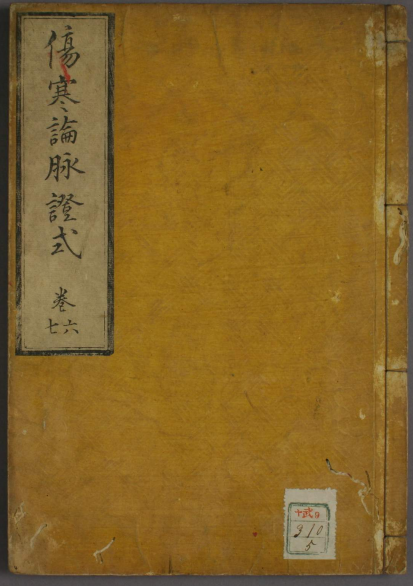 傷寒論脉證式
巻
六七
310
5